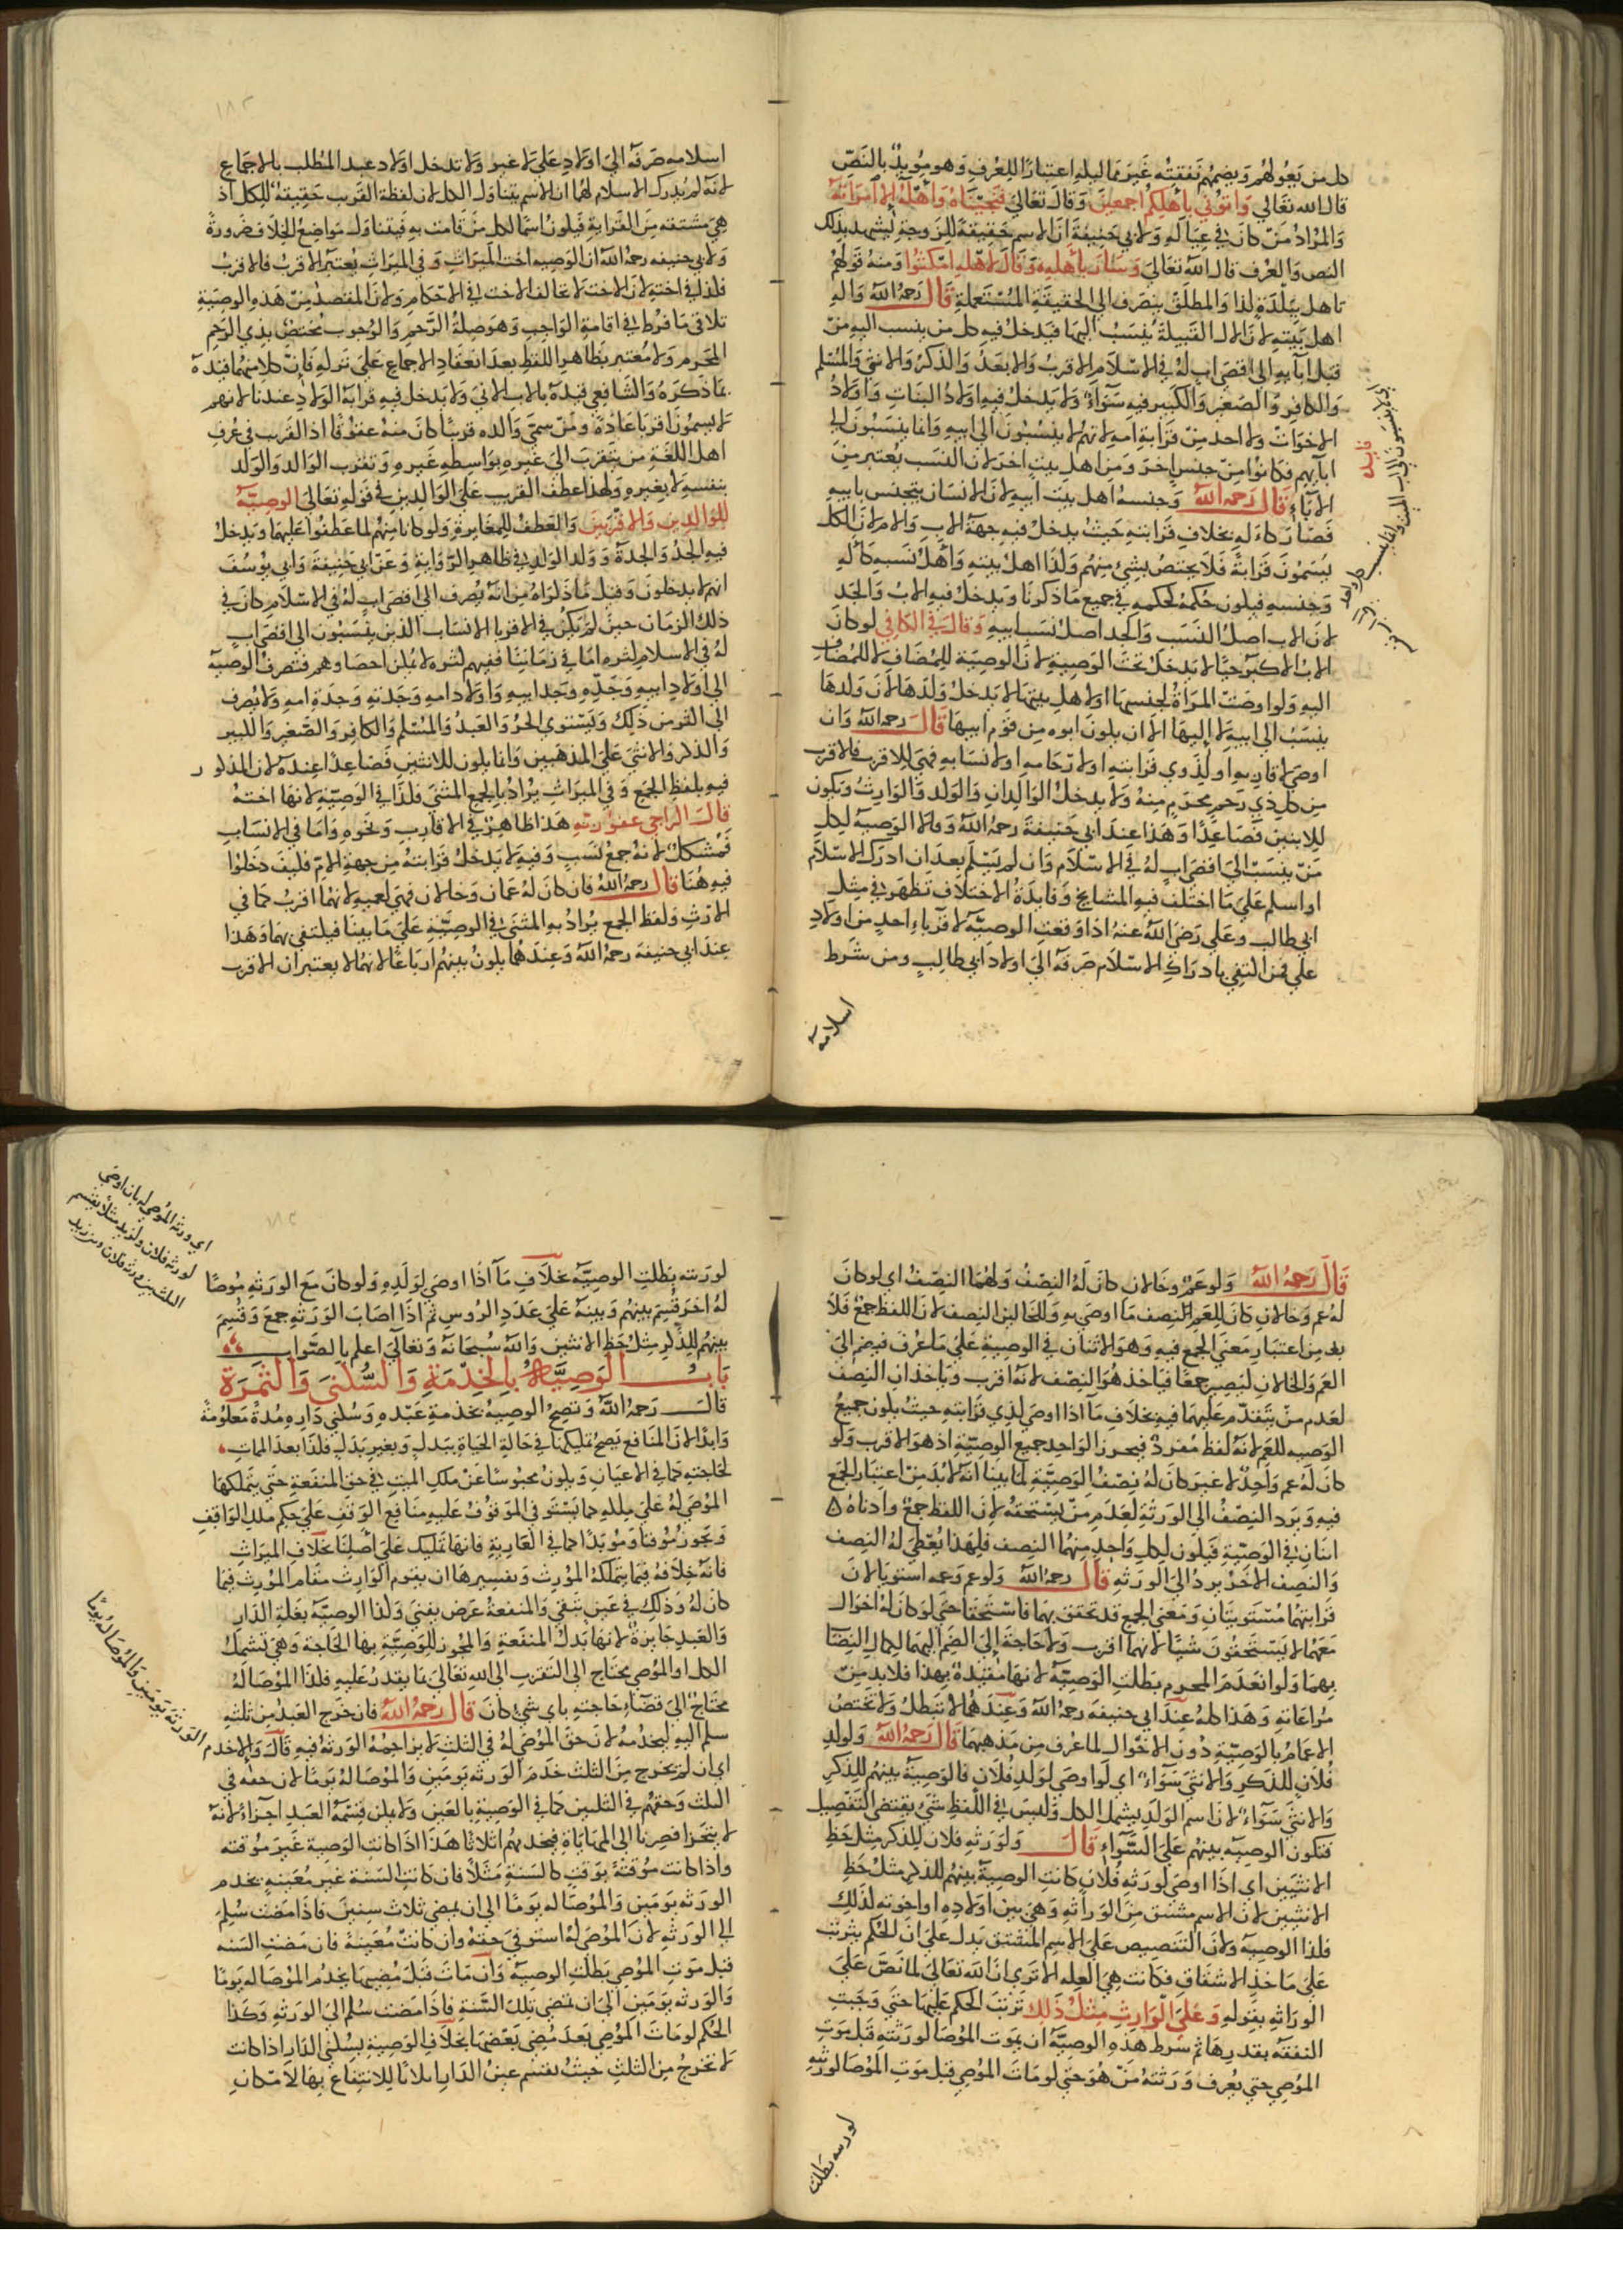 كل من يعولهم ويضمهم نفقته غير مماليكه اعتبارًا للعرف وهو مويد بالنص
قال الله تعالي واتوني باهلكم اجمعين وقال تعالي فنجيناه واهله الا امراته
والمراد من كان في عياله ولابي حنيفة ان الاسم حقيقة للزوجة يشهد بذلك
النص والعرف قال الله تعالي وسار باهله وقال لاهله امكثوا ومنه قولهم
تاهل ببلدة كذا والمطلق ينصرف الي الحقيقة المستعملة قال رحمه الله واله
اهل بيته لان الال القبيلة ينسب اليها فيدخل فيه كل من ينسب اليه من
قبل ابآيه الي اقصي اب له في الاسلام الاقرب والابعد والذكر والانثي والمسلم
والكافر والصغير والكبير فيه سوآء ولا يدخل فيه اولاد البنات واولاد
الاخوات ولا احد من قرابة امه لانهم لا ينسبون الي ابيه وانما ينسبون الي
ابآيهم فكانوا من جنس اخر ومن اهل بيت اخر لان النسب يعتبر من
الابآء قال رحمه الله وجنسه اهل بيت ابيه لان الانسان يتجنس بابيه
فصار كاله بخلاف قرابته حيث يدخل فيه جهة الاب والام لان الكل
يسمون قرابة فلا يختص بشئ منهم ولذا اهل بيته واهل نسبه كاله
وجنسه فيكون حكمه كحكمه في جميع ما ذكرنا ويدخل فيه الاب والجد
لان الاب اصل النسب والجد اصل نسب ابيه وقال في الكافي لو كان
الاب الاكبر حيًا لا يدخل تحت الوصية لان الوصية للمضاف لا للمضاف
اليه ولو اوصت المراة لجنسها او لاهل بيتها لا يدخل ولدها لان ولدها
ينسب الي ابيه لا اليها الا ان يكون ابوه من قوم ابيها قال رحمه الله وان
اوصي لاقاربه او لذوي قرابته او لارحامه او لانسابه فهي للاقرب فالاقرب
من كل ذي رحم محرم منه ولا يدخل الوالدان والولد والوارث ويكون
للاثنين فصاعدًا وهذا عند ابي حنيفة رحمه الله وقالا الوصية لكل
من ينسب الي اقصي اب له في الاسلام وان لم يسلم بعد ان ادرك الاسلام
او اسلم علي ما اختلف فيه المشايخ وفايدة الاختلاف تظهر في مثل
ابي طالب وعلي رضي الله عنه اذا وقعت الوصية لاقرباء احد من اولاد
علي فمن اكتفي بادراك الاسلام صرفه الي اولاد ابي طالب ومن شرط
اسلامه
اسلامه صرفه الي اولاد علي لا غير ولا تدخل اولاد عبد المطلب بالاجماع
لانه لم يدرك الاسلام لهما ان الاسم يتناول الكل لان لفظة القريب حقيقة للكل اذ
هي مشتقه من القرابة فيكون اسمًا لكل من قامت به فيتناول مواضع الخلاف ضرورة
ولابي حنيفه رحمه الله ان الوصية اخت الميراث وفي الميراث يعتبر الاقرب فالاقرب
فكذا في اخته لان الاخت لا تخالف الاخت في الاحكام ولان المقصد من هذه الوصية
تلافي ما فرط في اقامة الواجب وهو صلة الرحم والوجوب يختص بذي الرحم
المحرم ولا معتبر بظاهر اللفظ بعد انعقاد الاجماع علي تركه فان كلا منهما قيده
بما ذكره والشافعي قيده بالاب الادني ولا يدخل فيه قرابة الولاد عندنا لانهم
لا يسمون اقرباعادة ومن سمي والده قريبًا كان منه عقوقًا اذ القريب في عرف
اهل اللغة من يتقرب الي غيره بواسطه غيره وتقرب الوالد والولد
بنفسه لا بغيره ولهذا عطف القريب علي الوالدين في قوله تعالي الوصية
للوالدين والاقربين والعطف للمغايرة ولو كانا منهم لما عطفوا عليهما ويدخل
فيه الجد والجدة وولد الولد في ظاهر الرواية وعن ابي حنيفة وابي يوسف
انهم لا يدخلون وقيل ما ذكراه من انه يصرف الي اقصي اب له في الاسلام كان في
ذلك الزمان حين لم يكن في الاقربا الانساب الذين ينسبون الي اقصي اب
له في الاسلام كثره اما في زماننا ففيهم كثره لا يمكن احصاوهم فتصرف الوصية
الي اولاد ابيه وجده وجد ابيه واولاد امه وجدته وجدة امه ولا يصرف
الي اكثر من ذلك ويستوي الحر والعبد والمسلم والكافر والصغير والكبير
والذكر والانثي علي المذهبين وانما يكون للاثنين فصاعدًا عنده لان المذكور
فيه بلفظ الجمع وفي الميراث يراد بالجمع المثني فكذا في الوصية لانها اخته
قال الراجي عفو ربه هذا ظاهر في الاقارب ونحوه واما في الانساب
فمشكل لانه جمع نسب وفيه لا يدخل قرابته من جهة الام فكيف دخلوا
فيه هنا قال رحمه الله فان كان له عمان وخالان فهي لعميه لانهما اقرب كما في
الارث ولفظ الجمع يراد به المثني في الوصية علي ما بينا فيكتفي بهما وهذا
عند ابي حنيفة رحمه الله وعندهما يكون بينهم ارباعًا لانهما لا يعتبران الاقرب
قال رحمه الله ولو عم وخالان كان له النصف ولهما النصف اي لو كان
له عم وخالان كان للعم النصف ما اوصي به وللخالين النصف لان اللفظ جمع فلا
بد من اعتبار معني الجمع فيه وهو الاثنان في الوصية علي ما عرف فيضم الي
العم والخالان ليصير جمعًا فياخذ هو النصف لانه اقرب وياخذان النصف
لعدم من يتقدم عليهما فيه بخلاف ما اذا اوصي لذي قرابته حيث يكون جميع
الوصيه للعم لانه لفظ مفرد فيحرز الواحد جميع الوصية اذ هو الاقرب ولو
كان له عم واحد لا غير كان له نصف الوصية لما بينا انه لا بد من اعتبار الجمع
فيه ويرد النصف الي الورثة لعدم من يستحقه لان اللفظ جمع وادناه
اثنان في الوصية فيكون لكل واحد منهما النصف فلهذا يعطي له النصف
والنصف الاخر يرد الي الورثه قال رحمه الله ولو عم وعمه استويا لان
قرابتهما مستويتان ومعني الجمع قد تحقق بهما فاستحقا حتي لو كان له اخوال
معهما لا يستحقون شيًا لانهما اقرب ولا حاجة الي الضم اليهما لكمال النصاب
بهما ولو انعدم المحرم بطلت الوصية لانها مقيدة بهذا فلا بد من
مراعاته وهذا كله عند ابي حنيفه رحمه الله وعندهما لا تبطل ولا تختص
الاعمام بالوصية دون الاخوال لما عرف من مذهبهما قال رحمه الله ولولد
فلان للذكر والانثي سوآء اي لو اوصي لولد فلان فالوصية بينهم للذكر
والانثي سوآء لان اسم الولد يشمل الكل وليس في اللفظ شئ يقتضي التفصيل
فتكون الوصية بينهم علي السواء قال ولورثه فلان للذكر مثل حظ
الانثيين اي اذا اوصي لورثه فلان كانت الوصية بينهم للذكر مثل حظ
الانثيين لان الاسم مشتق من الوراثه وهي بين اولاده او اخوته كذلك
فكذا الوصية ولان التنصيص علي الاسم المشتق يدل علي ان الحكم يترتب
علي ماخذ الاشتقاق فكانت هي العله الا تري ان الله تعالي لما نص علي
الوراثه بقوله وعلي الوارث مثل ذلك ترتب الحكم عليها حتي وجبت
النفقه بقدرها ثم شرط هذه الوصية ان يموت الموصا لورثته قبل موت
الموصي حتي يعرف ورثته من هو حتي لو مات الموصي قبل موت الموصا لورثته
لورثته بطلت
لورثته بطلت الوصية بخلاف ما اذا اوصي لولده ولو كان مع الورثه موصًا
له اخر قسم بينهم وبينه علي عدد الروس ثم اذا اصاب الورثه جمع وقسم
بينهم للذكر مثل حظ الانثيين والله سبحانه وتعالي اعلم بالصواب
باب الوصية بالخدمة والسكني والثمرة
قال رحمه الله وتصح الوصية بخدمة عبده وسكني داره مدة معلومة
وابدًا لان المنافع يصح تمليكها في حالة الحياة ببدل وبغير بدل فكذا بعد الممات
لحاجته كما في الاعيان ويكون محبوسًا عن ملك الميت في حق المنفعة حتي يتملكها
الموصي له علي ملكه كما يستوفي الموقوف عليه منافع الوقف علي حكم ملك الواقف
ويجوز موقتا وموبدًا كما في العارية فانها تمليك علي اصلنا بخلاف الميراث
فانه خلافه فيما يتملكه المورث وتفسيرها ان يقوم الوارث مقام المورث فيما
كان له وذلك في عين تبقي والمنفعة عرض يفني وكذا الوصية بغلة الدار
والعبد جايزة لانها بدل المنفعة والمجوز للوصية بها الحاجة وهي تشمل
الكل او الموصي محتاج الي التقرب الي الله تعالي بما يقدر عليه فكذا الموصا له
محتاج الي قضآء حاجته باي شئ كان قال رحمه الله فان خرج العبد من ثلثه
سلم اليه ليخدمه لان حق الموصي له في الثلث لا يزاحمه الورثة فيه قال والا خدم
اي ان لم يخرج من الثلث خدم الورثه يومين والموصا له يومًا لان حقه في
الثلث وحقهم في الثلثين كما في الوصية بالعين ولا يمكن قسمة العبد اجزآء لانه
لا يتجزا فصرنا الي المهاياة فيخدمهم اثلاثًا هذا اذا كانت الوصية غير موقته
واذا كانت موقتة بوقت كالسنة مثلًا فان كانت السنة غير معينه يخدم
الورثه يومين والموصا له يومًا الي ان يمضي ثلاث سنين فاذا مضت سلم
الي الورثه لان الموصي له استوفي حقه وان كانت معينة فان مضت السنه
قبل موت الموصي بطلت الوصية وان مات قبل مضيها يخدم الموصا له يومًا
والورثه يومين الي ان تمضي تلك السنة فاذا مضت سلم الي الورثه وكذا
الحكم لو مات الموصي بعد مضي بعضها بخلاف الوصية بسكني الدار اذا كانت
لا تخرج من الثلث حيث يقسم عين الدار اثلاثًا للانتفاع بها لامكان
اي ورثه الموصي له بان اوصي
لورثه فلان ولزيد مثلًا يقسم
الثلث بين ورثه فلان وبين زيد
الورثة يومين والموصا له يومًا